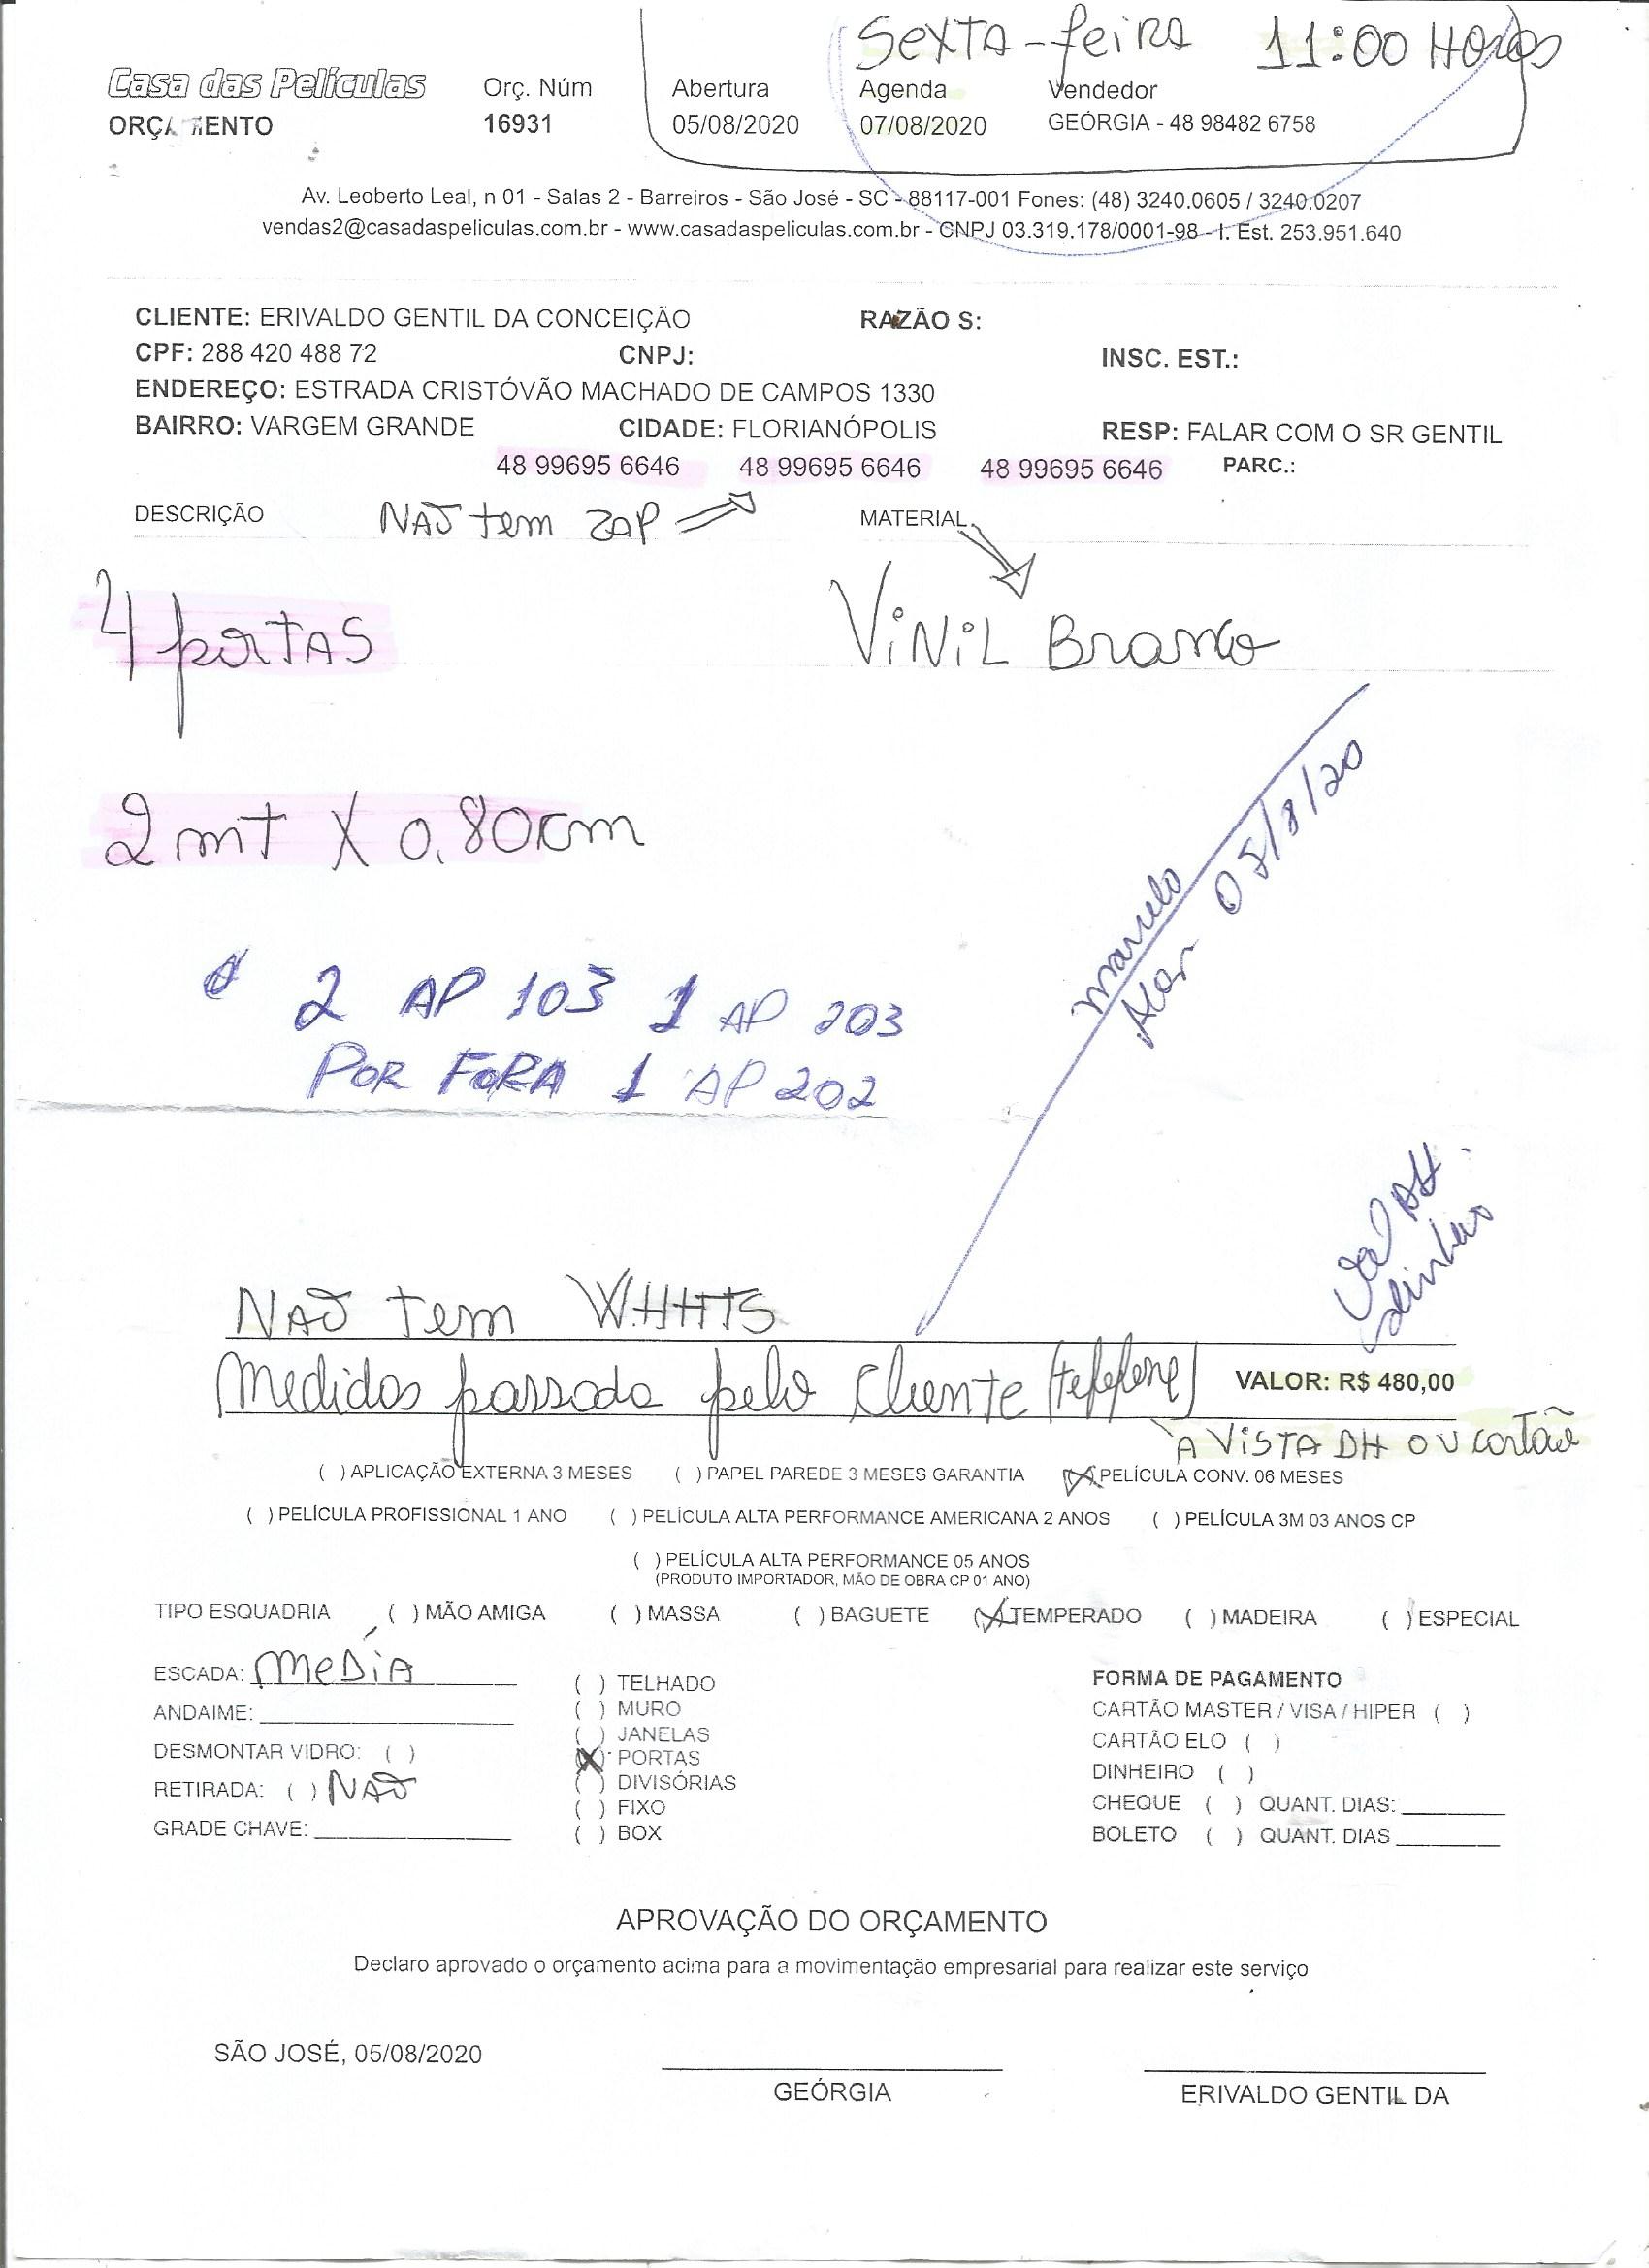 SEXTA-feiRA 11:00 HORAS
Casa das Películas
ORÇAMENTO
Orç. Núm
16931
Abertura
05/08/2020
Agenda
07/08/2020
Vendedor
GEÓRGIA - 48 98482 6758
Av. Leoberto Leal, n 01 - Salas 2 - Barreiros - São José - SC - 88117-001 Fones: (48) 3240.0605 / 3240.0207
vendas2@casadaspeliculas.com.br - www.casadaspeliculas.com.br - CNPJ 03.319.178/0001-98 - I. Est. 253.951.640
CLIENTE: ERIVALDO GENTIL DA CONCEIÇÃO RAZÃO S:
CPF: 288 420 488 72 CNPJ: INSC. EST.:
ENDEREÇO: ESTRADA CRISTÓVÃO MACHADO DE CAMPOS 1330
BAIRRO: VARGEM GRANDE CIDADE: FLORIANÓPOLIS RESP: FALAR COM O SR GENTIL
48 99695 6646 48 99695 6646 48 99695 6646 PARC.:
DESCRIÇÃO NÃO tem ZAP MATERIAL
4 portas ViNiL Branco
2 mt X 0,80cm
2 AP 103 1 AP 203
POR FORA 1 AP 202
NÃO tem WHHTS
Medidas passada pelo Cliente (telefone) VALOR: R$ 480,00
À VISTA DH OU cartão
( ) APLICAÇÃO EXTERNA 3 MESES ( ) PAPEL PAREDE 3 MESES GARANTIA (X) PELÍCULA CONV. 06 MESES
( ) PELÍCULA PROFISSIONAL 1 ANO ( ) PELÍCULA ALTA PERFORMANCE AMERICANA 2 ANOS ( ) PELÍCULA 3M 03 ANOS CP
( ) PELÍCULA ALTA PERFORMANCE 05 ANOS
(PRODUTO IMPORTADOR, MÃO DE OBRA CP 01 ANO)
TIPO ESQUADRIA ( ) MÃO AMIGA ( ) MASSA ( ) BAGUETE (X) TEMPERADO ( ) MADEIRA ( ) ESPECIAL
ESCADA: MeDiA
ANDAIME:
DESMONTAR VIDRO: ( )
RETIRADA: ( ) NÃO
GRADE CHAVE:
( ) TELHADO
( ) MURO
( ) JANELAS
(X) PORTAS
( ) DIVISÓRIAS
( ) FIXO
( ) BOX
FORMA DE PAGAMENTO
CARTÃO MASTER / VISA / HIPER ( )
CARTÃO ELO ( )
DINHEIRO ( )
CHEQUE ( ) QUANT. DIAS:
BOLETO ( ) QUANT. DIAS
APROVAÇÃO DO ORÇAMENTO
Declaro aprovado o orçamento acima para a movimentação empresarial para realizar este serviço
SÃO JOSÉ, 05/08/2020
GEÓRGIA
ERIVALDO GENTIL DA